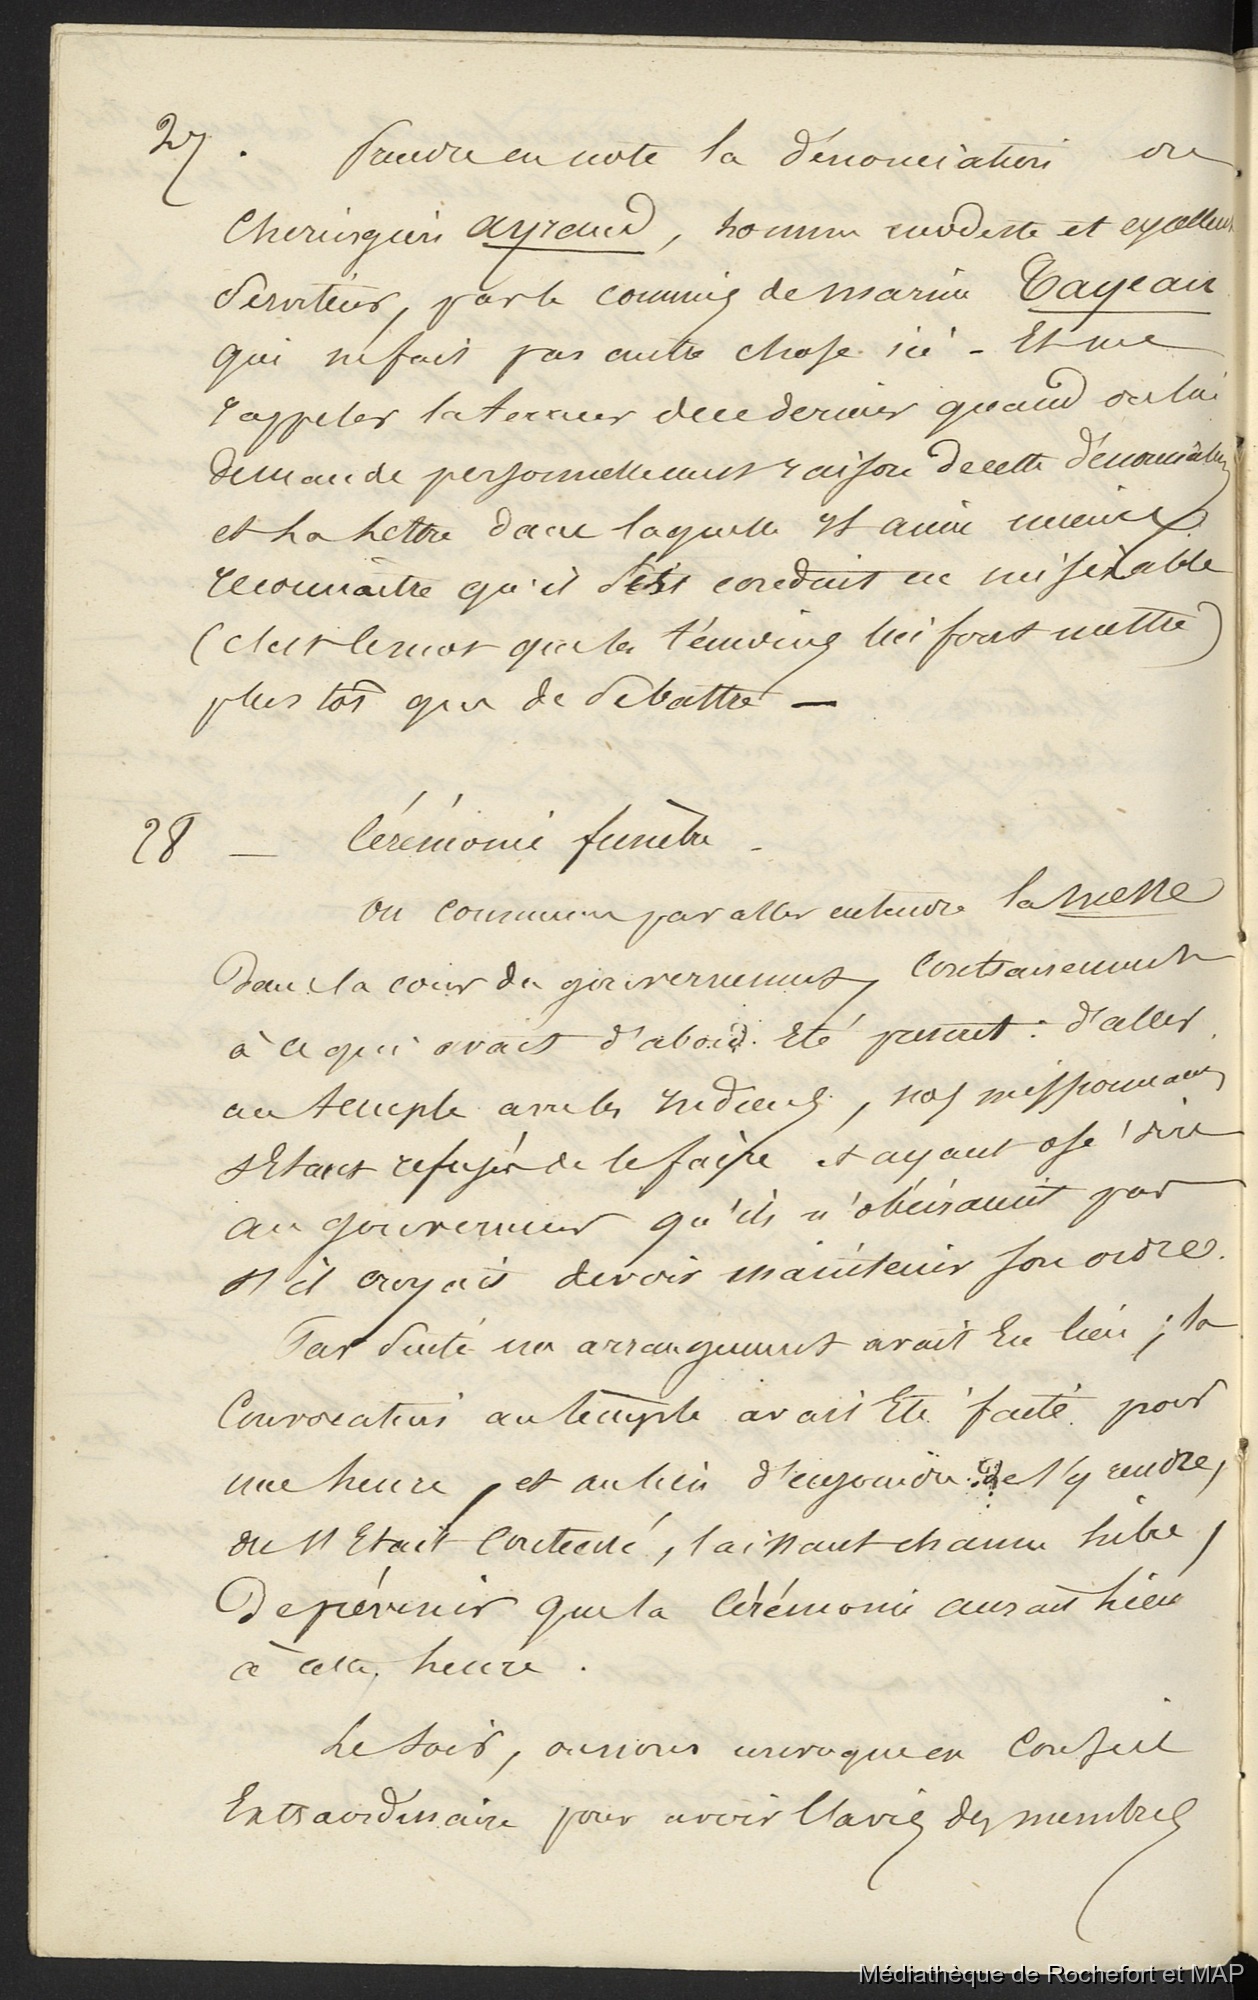 27. Prendre en note la dénonciation du
Chirurgien Ayraud, homme modeste et excellent
Serviteur, par le commis de marine Cayeau
qui ne fait pas autre chose ici - Et me
rappeler la terreur de ce dernier quand on lui
demande personnellement raison de cette dénonciation
et la lettre dans laquelle il aime mieux
reconnaître qu'il s'est conduit en misérable
(c'est le mot que les témoins lui font mettre)
plus tôt que de se battre —
28 — Cérémonie funèbre -
On commence par aller entendre la messe
Dans la cour du gouvernement, Contrairement
à ce qui avait d'abord été prescrit : d'aller
au temple avec les Indiens, nos missionnaires
s'Etant refusés de le faire et ayant osé dire
au gouverneur qu'ils n'obéiraient pas
s'il croyait devoir maintenir son ordre.
Par suite un arrangement avait Eu lieu ; la
Convocation au temple avait Eté faite pour
une heure, et au lieu d'enjoindre de s'y rendre,
on s'Etait Contenté, laissant chacun libre,
De prévenir que la Cérémonie aurait lieu
à cette heure.
Le soir, on nous convoque en Conseil
Extraordinaire pour avoir l'avis des membres
Médiathèque de Rochefort et MAP